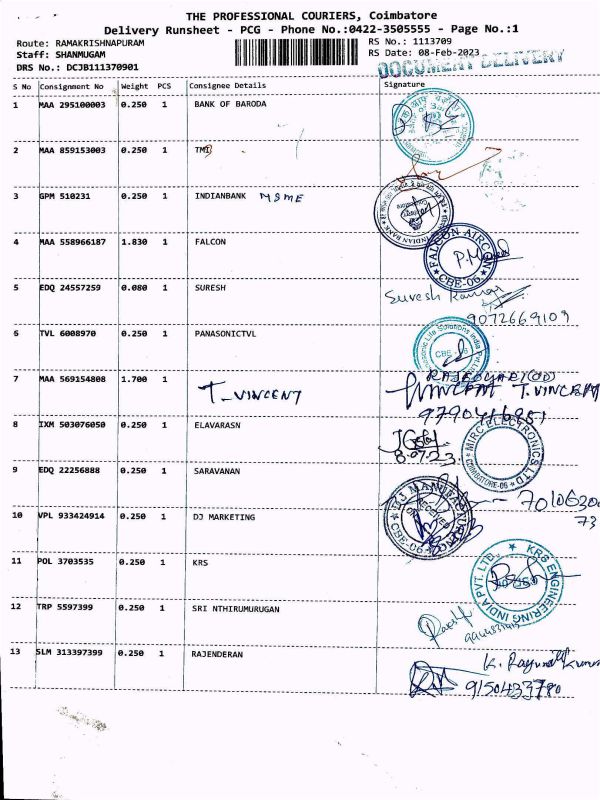 THE PROFESSIONAL COURIERS, Coimbatore
Delivery Runsheet - PCG - Phone No.:0422-3505555 - Page No.:1
Route: RAMAKRISHNAPURAM RS No.: 1113709
Staff: SHANMUGAM RS Date: 08-Feb-2023
DRS No.: DCJB111370901 DOCUMENT DELIVERY
S No Consignment No Weight PCS Consignee Details Signature
1 MAA 295100003 0.250 1 BANK OF BARODA
2 MAA 859153003 0.250 1 TMB
3 GPM 510231 0.250 1 INDIANBANK MSME
INDIAN BANK
4 MAA 558966187 1.830 1 FALCON
FALCON AIRCON CBE-06
5 EDQ 24557259 0.080 1 SURESH Suresh Kumar
9072669109
6 TVL 6008970 0.250 1 PANASONICTVL
Panasonic Life Solutions India Pvt Ltd CBE - 06
7 MAA 569154808 1.700 1 T-VINCENT T. VINCENT
8 IXM 503076050 0.250 1 ELAVARASN
MIRC ELECTRONICS LTD COIMBATORE-06
9 EDQ 22256888 0.250 1 SARAVANAN
10 VPL 933424914 0.250 1 DJ MARKETING
CBE-06
11 POL 3703535 0.250 1 KRS
KRS ENGINEERING INDIA PVT. LTD.
12 TRP 5597399 0.250 1 SRI NTHIRUMURUGAN
13 SLM 313397399 0.250 1 RAJENDERAN
9150433780